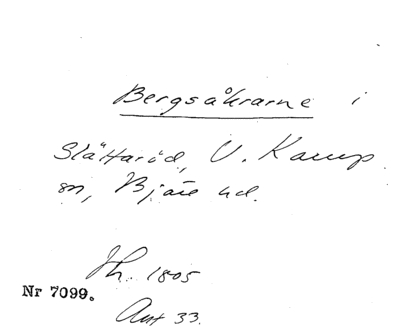 Bergsåkrarne i
Slättaröd, V. Karup
sn, Bjäre hd.
Jh. 1805
Nr 7099.
Ant 33.